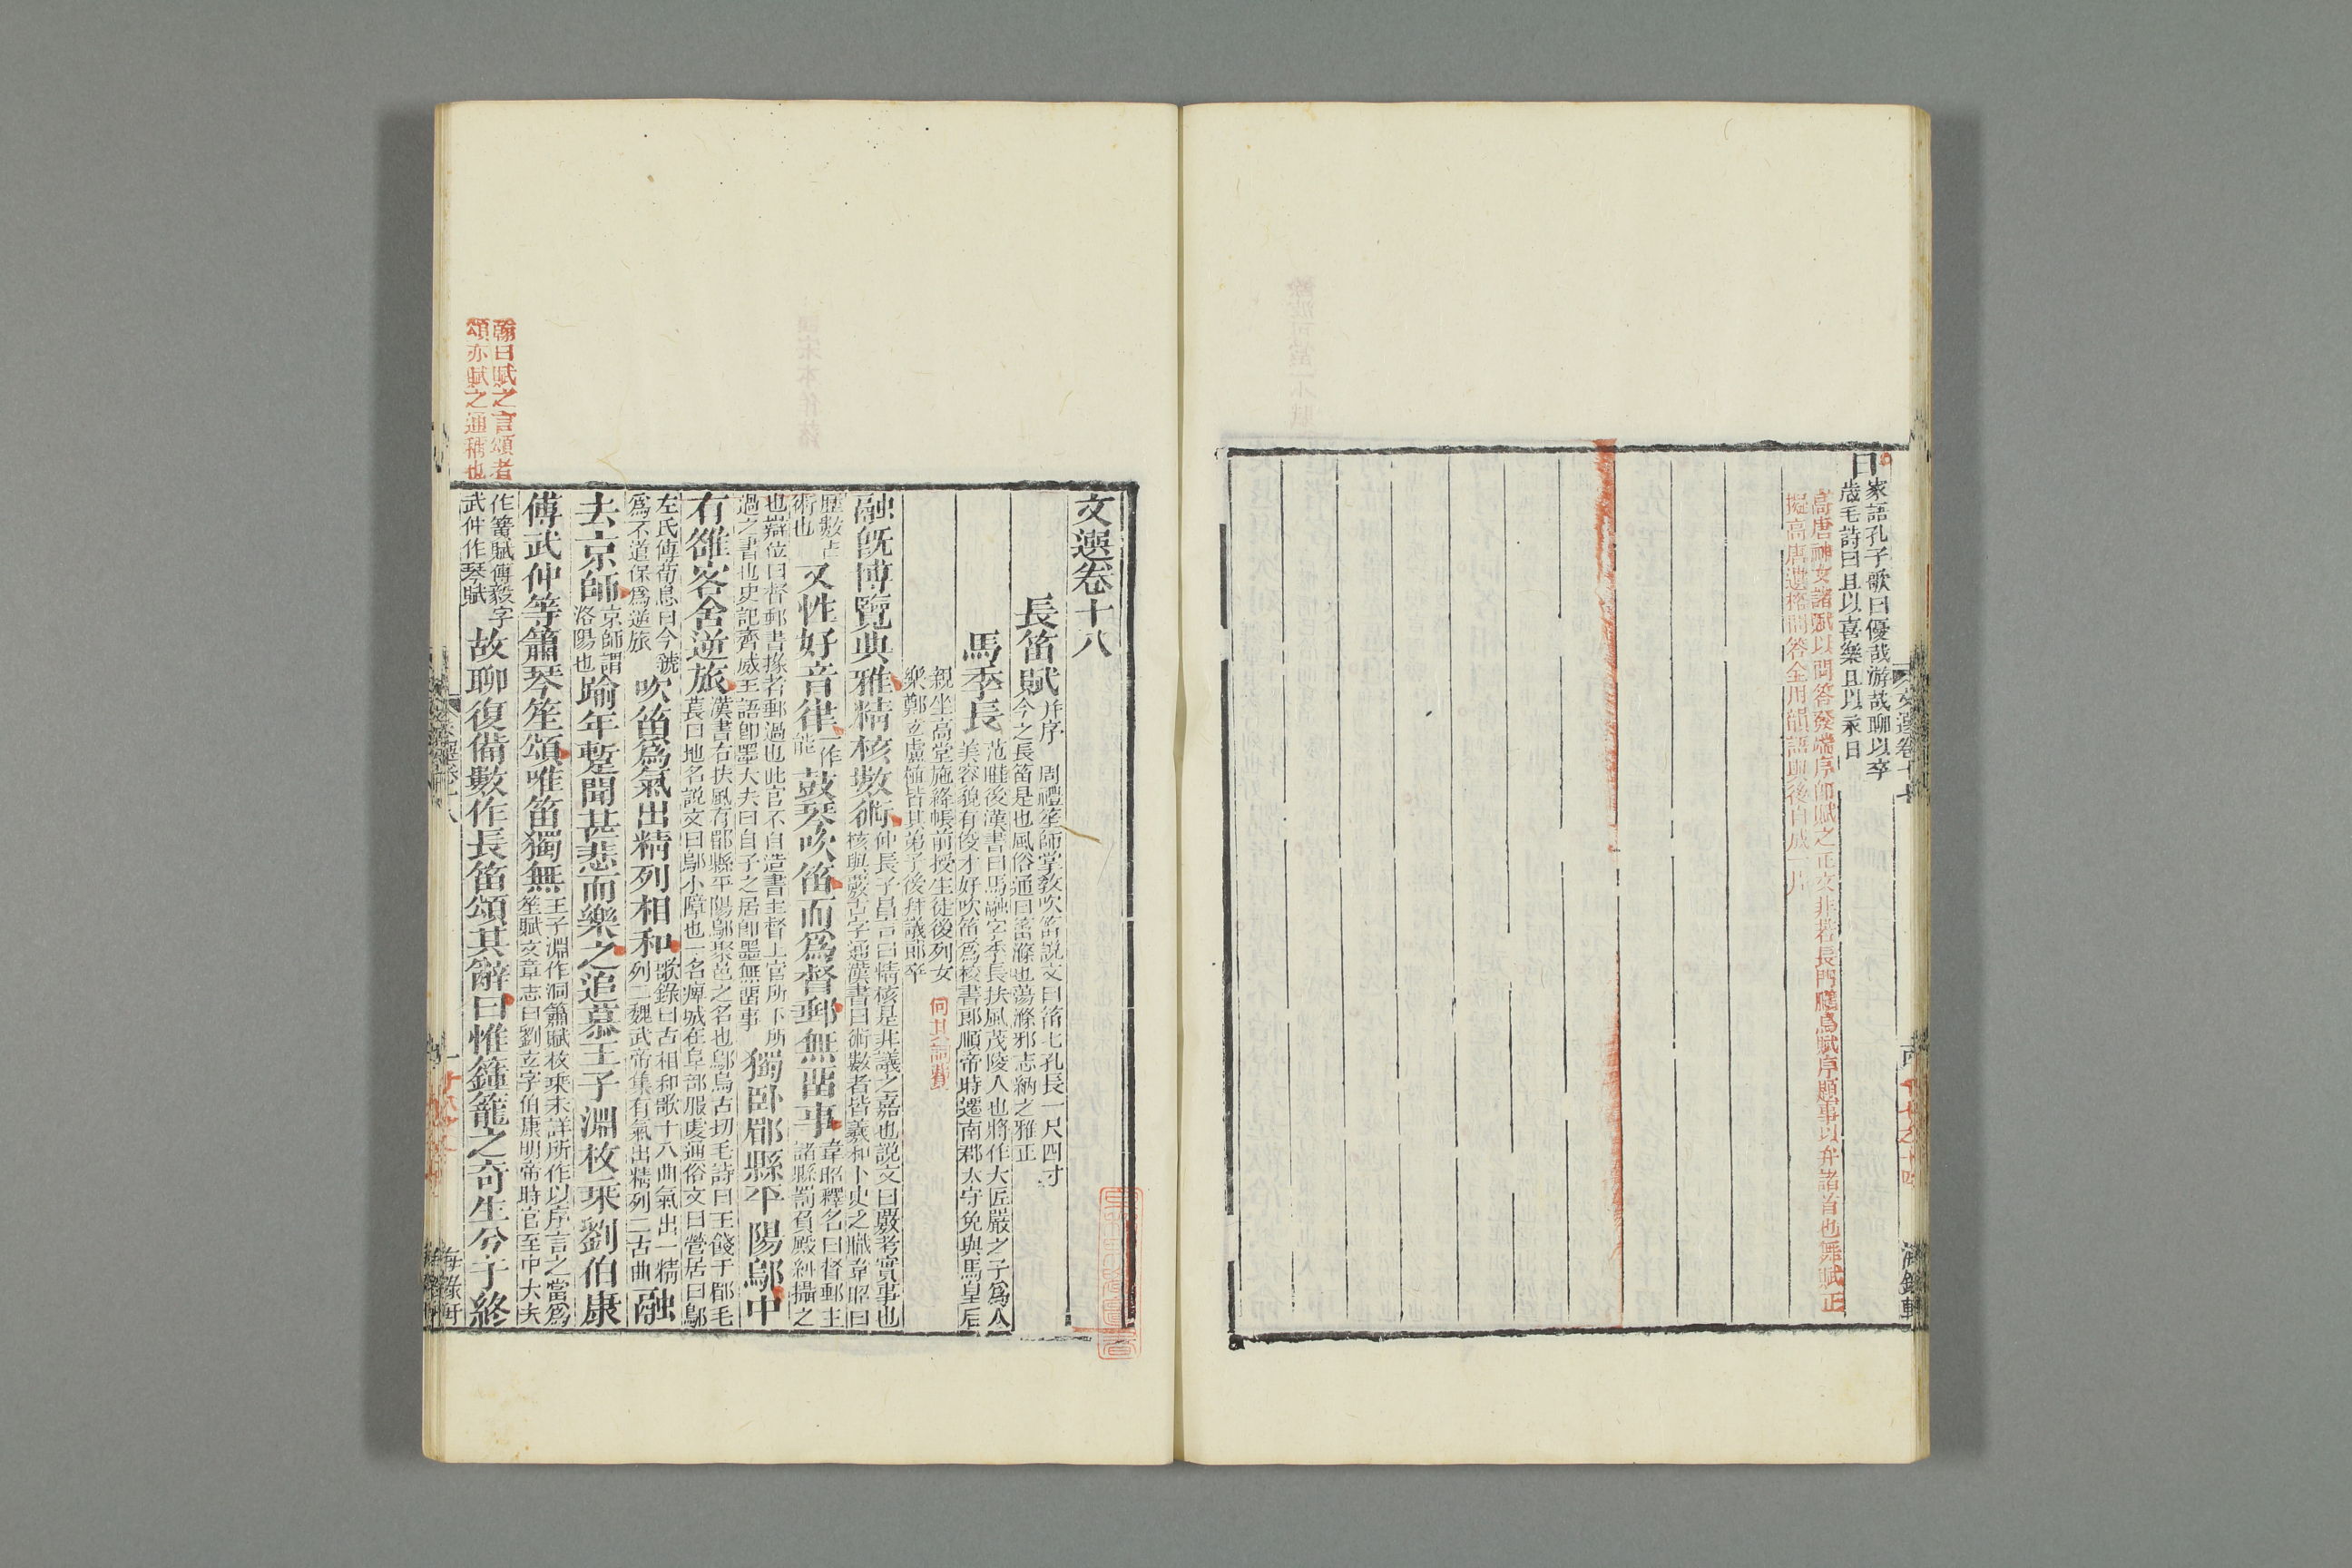 日
家語孔子歌曰優哉游哉聊以卒
歲毛詩曰且以喜樂且以永日
高唐神女諸賦以問答發端序即賦之正文非若長門鵩鳥賦序題事以弁諸首也舞賦正
擬高唐邊格問答全用韻語與後自成一片
文選卷十七
海錄軒
文選卷十八
長笛賦并序
周禮笙師掌敎吹笛說文曰笛七孔長一尺四寸
今之長笛是也風俗通曰笛滌也蕩滌邪志納之雅正
馬季長
范曄後漢書曰馬融字季長扶風茂陵人也將作大匠嚴之子爲人
美容貌有俊才好吹笛爲校書郞順帝時遷南郡太守免與馬皇后
親坐高堂施絳帳前授生徒後列女
樂鄭玄盧植皆其弟子後拜議郞卒
融旣博覽典雅精核數術
仲長子昌言曰情核是非議之嘉也說文曰覈考實事也
核與覈古字通漢書曰術數者皆羲和卜史之職韋昭曰
歷數占
術也
又性好音律
一作
能
鼓琴吹笛而爲督郵無留事
韋昭釋名曰督郵主
諸縣罰負殿糾攝之
也辯位曰督郵書掾者郵過也此官不自造書主督上官所下所
過之書也史記齊威王語卽墨大夫曰自子之居卽墨無留事
獨卧郿縣平陽鄔中
有雒客舍逆旅
漢書右扶風有郿縣平陽鄔聚邑之名也鄔烏古切毛詩曰王餞于郿毛
萇曰地名說文曰鄔小障也一名庳城在阜部服虔通俗文曰營居曰鄔
左氏傳荀息曰今虢
爲不道保爲逆旅
吹笛爲氣出精列相和
歌錄曰古相和歌十八曲氣出一精
列二魏武帝集有氣出精列二古曲
融
去京師
京師謂
洛陽也
踰年蹔聞甚悲而樂之追慕王子淵枚乘劉伯康
傅武仲等簫琴笙頌唯笛獨無
王子淵作洞簫賦枚乘未詳所作以序言之當爲
笙賦文章志曰劉玄字伯康明帝時官至中大夫
作簧賦傅毅字
武仲作琴賦
故聊復備數作長笛頌其辭曰惟籦籠之奇生兮于終
翰曰賦之言頌者
頌亦賦之通稱也
海錄軒